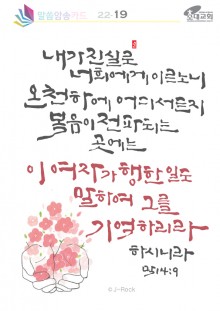 말씀암송카드 22-19
내가 진실로
너희에게 이르노니
온 천하에 어디서든지
복음이 전파되는
곳에는
이 여자가 행한 일도
말하여 그를
기억하리라
하시니라
막14:9
@J-Rock